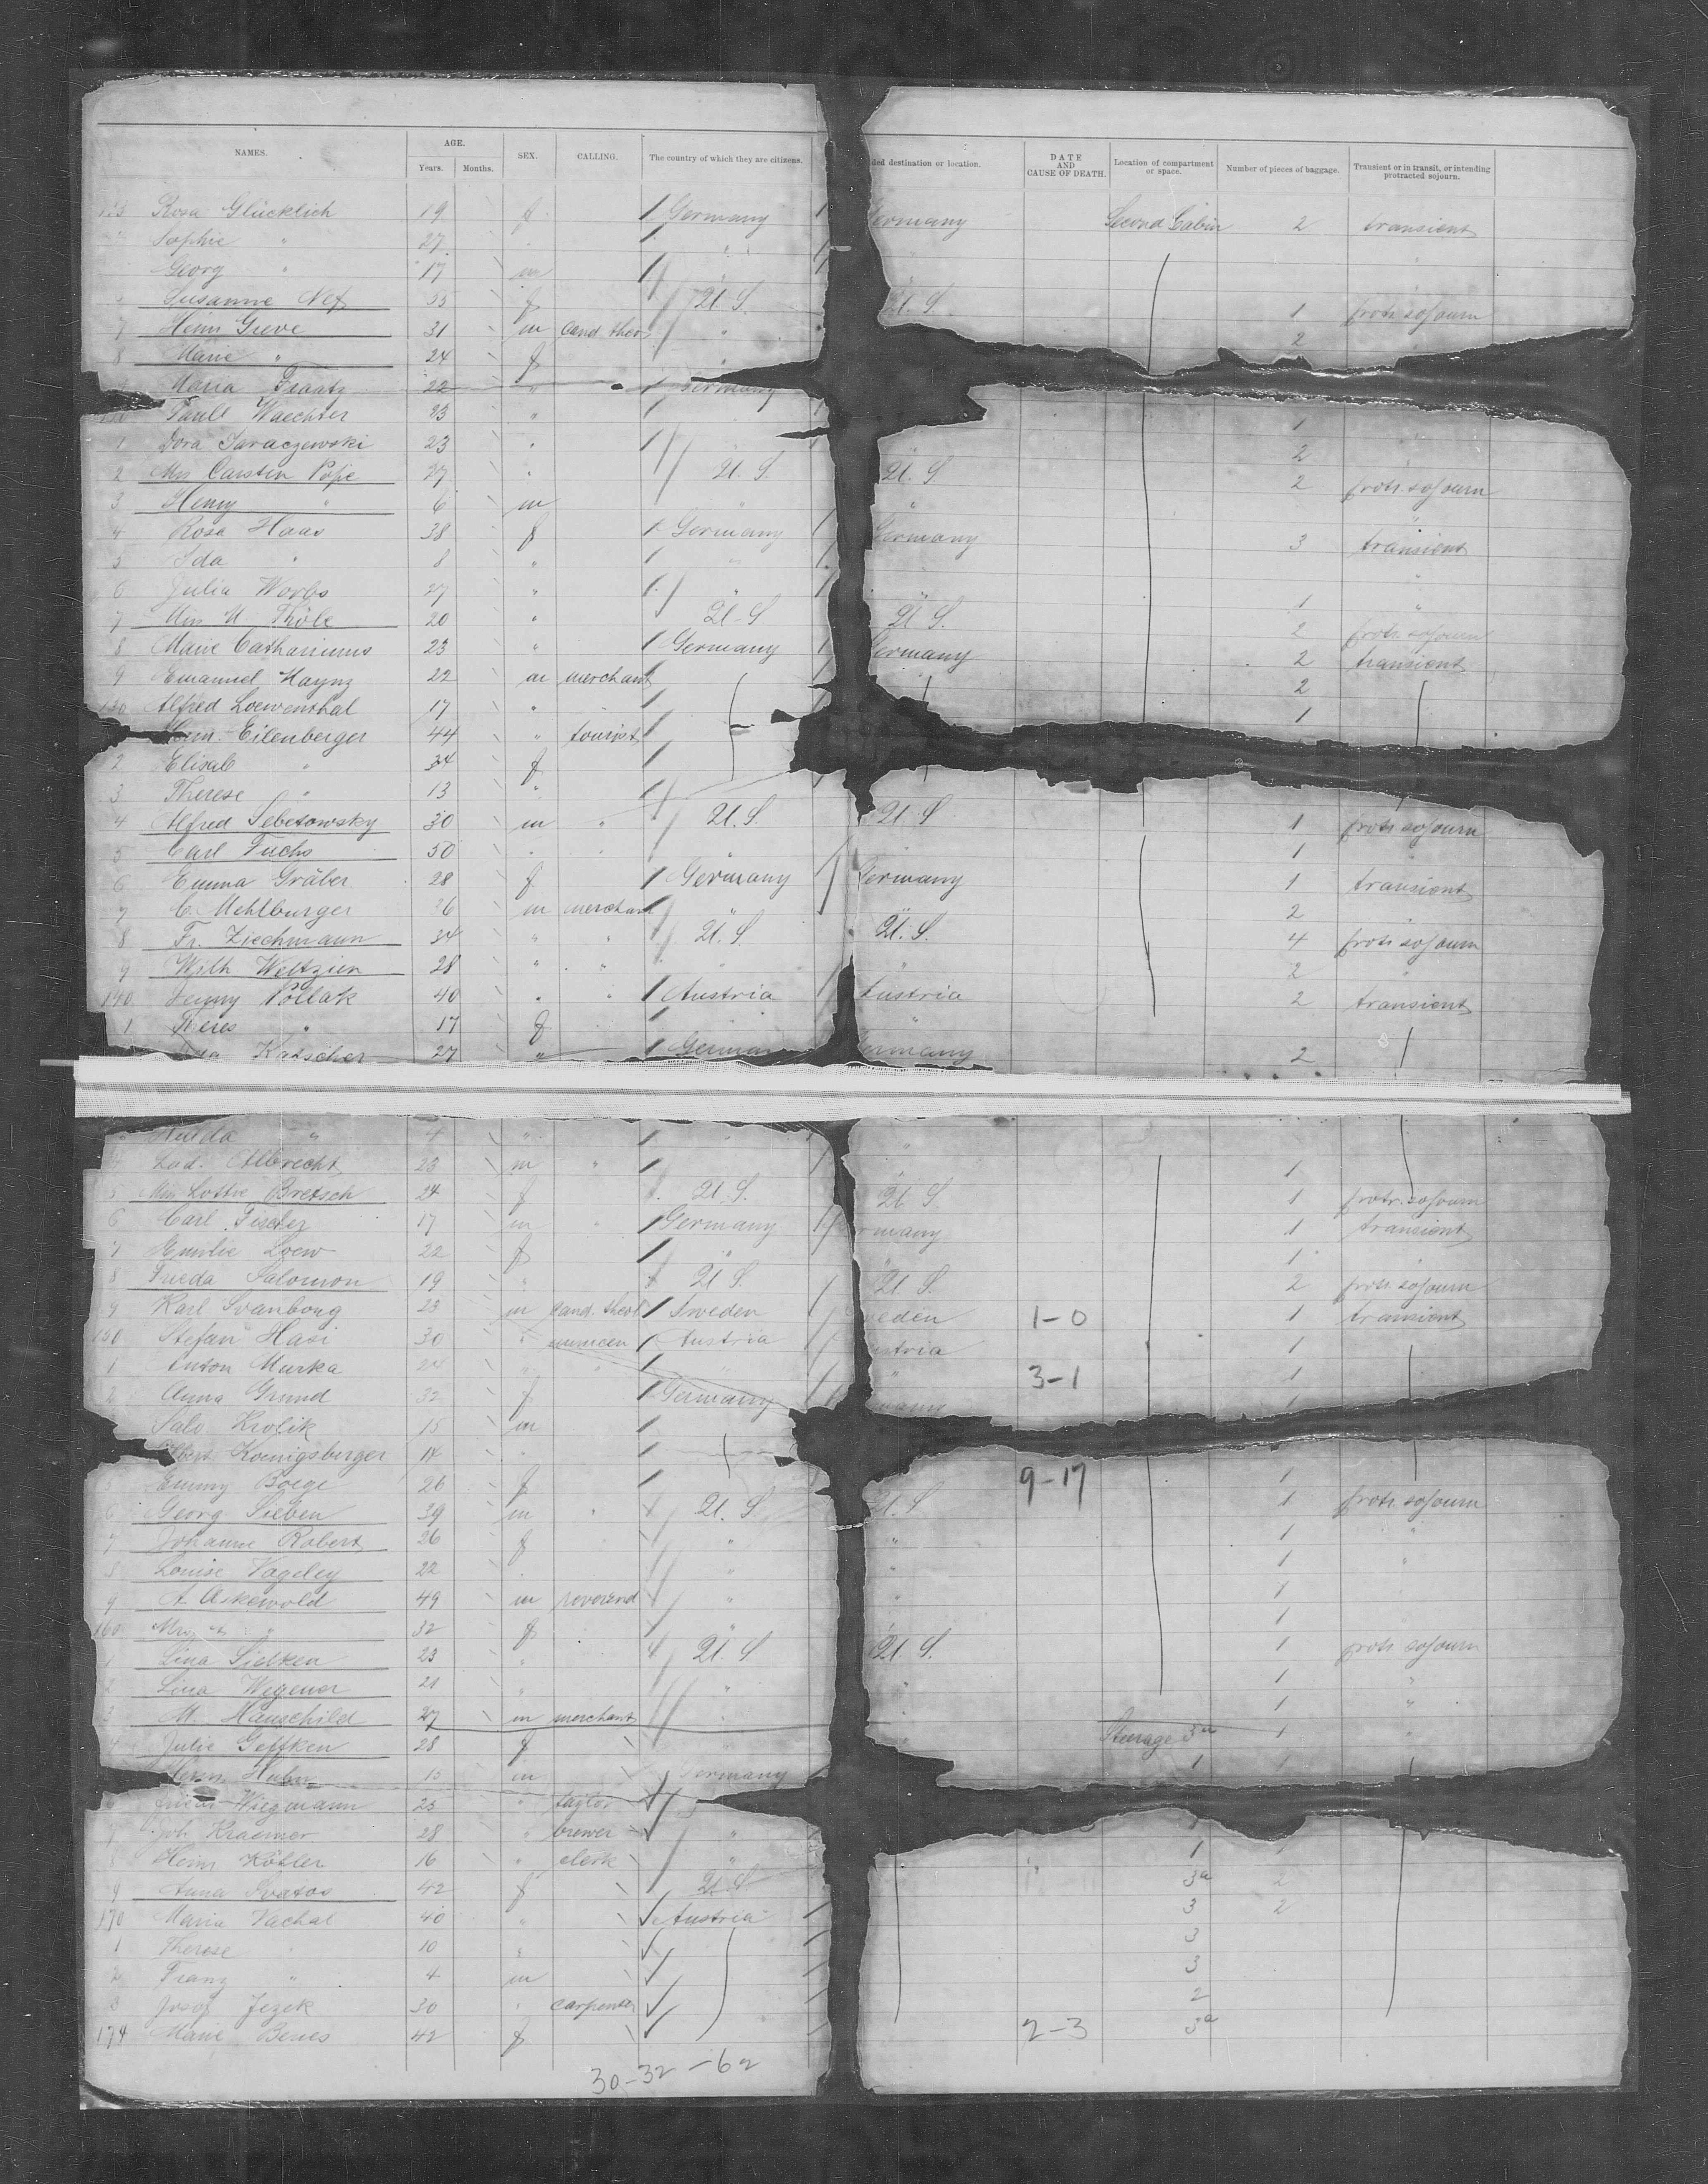 NAMES. AGE. Years. Months. SEX. CALLING. The country of which they are citizens. ded destination or location. DATE AND CAUSE OF DEATH. Location of compartment or space. Number of pieces of baggage. Transient or in transit, or intending protracted sojourn.
Rosa Glücklich 19 f Germany ermany Second Cabin 2 transient
Sophie " 27
Georg " 17 m
Susanne Nef f U. S. U. S. 1 protr. sojourn
7 Heinr Greve 31 m cand. theol " 2
8 Marie " 24 f
Maria Fraatz 22 " Germany
Paull Waechter 23 " 1
1 Dora Saraczewski 23 " 2
2 Mrs Carsten Pope 27 " U. S. U. S. 2 protr. sojourn
3 Henry " 6 m " "
4 Rosa Haas 38 f Germany Germany 3 transient
5 Ida " 8 " "
6 Julia Worbs 27 " " 1 "
7 Miss M Thöle 20 " U. S. U. S. 2 protr. sojourn
8 Marie Catharinus 23 " Germany ermany 2 transient
9 Emanuel Haynz 22 m merchant 2
Alfred Loewenthal 17 " 1
Eilenberger 44 " tourist
2 Elisab " 34 f
3 Therese " 13 "
4 Alfred Sebetowsky 30 m " U. S. U. S 1 protr. sojourn
5 Carl Fuchs 50 " 1
6 Emma Gräber 28 f Germany Germany 1 transient
7 C. Mehlburger 26 m merchant " 2
8 Fr. Ziechmann 34 " " U. S. U. S. 4 protr. sojourn
9 Wilh Weltzien 28 " " " 2 "
140 Jenny Pollak 40 " " Austria Austria 2 transient
1 Teres " 17 f
Katscher 27 " German ermany 2
Hulda " 4 "
Lud. Albrecht 23 m " 1
5 Miss Lottie Bretsch 24 f U. S. U. S. 1 protr. sojourn
6 Carl 17 m Germany rmany 1 transient
7 Emilie Loew 22 f " 1
8 Frieda Salomon 19 " U. S. U. S. 2 protr. sojourn
9 Karl Svanborg 23 m cand. theol Sweden weden 1-0 1 transient
150 Stefan Hasi 30 " Austria ustria 1
1 Anton Murka 24 " " " 3-1 1
2 Anna Grund 32 f Germany 1
Salo Krolik 15 m
Koenigsberger 14 "
5 Emmy Boege 26 f 9-17 1
6 Georg Sieben 39 m " U. S U. S 1 protr. sojourn
7 Johanne Robert 26 f " " 1 "
8 Louise Vogeley 22 " " " 1 "
9 A Askewold 49 m reverend " " 1
160 Mrs " " 32 f " 1
1 Lina Sielken 23 " U. S. U. S. 1 protr. sojourn
2 Lina Wegener 21 " " " 1 "
3 M. Hauschild 27 m merchant " " 1 "
4 Julie Geffken 28 f " Steerage 3a 1 "
15 m Germany 1 1
Wiegmann 23 " taylor
7 Joh Kraemer 28 " brewer "
8 Heinr Köhler 16 " clerk " 1
9 Anna Svatos 42 f U. S 3a 2
170 Maria Vachal 40 " Austria 3 2
1 Therese " 10 " 3
2 Franz " 4 m 3
3 Josef Jezek 30 " carpenter 2
174 Marie Benes 42 f 2-3 3a
30-32-62